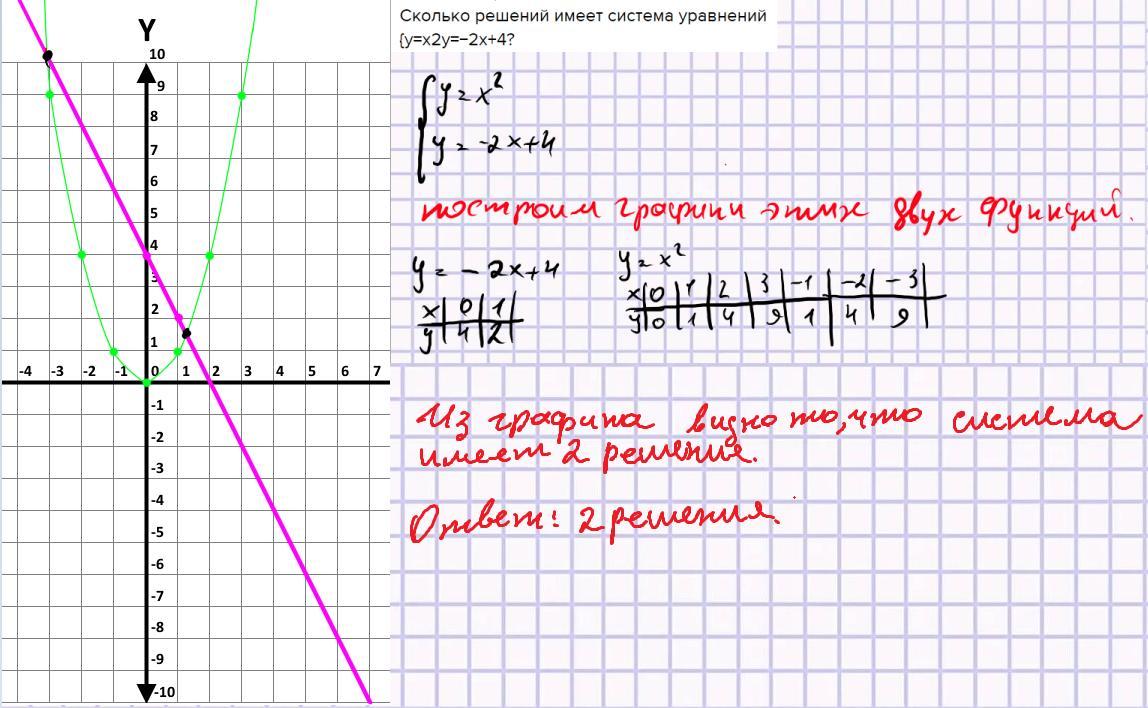 Сколько решений имеет система уравнений
{y=x2y=−2x+4?
{ y = x²
y = -2x+4
построим графики этих двух функций.
y = - 2x+4
x | 0 | 1
y | 4 | 2
y = x²
x | 0 | 1 | 2 | 3 | -1 | -2 | -3
y | 0 | 1 | 4 | 9 | 1 | 4 | 9
Из графика видно то, что система
имеет 2 решения.
Ответ: 2 решения.
Y
10
9
8
7
6
5
4
3
2
1
-4 -3 -2 -1 0 1 2 3 4 5 6 7
-1
-2
-3
-4
-5
-6
-7
-8
-9
-10